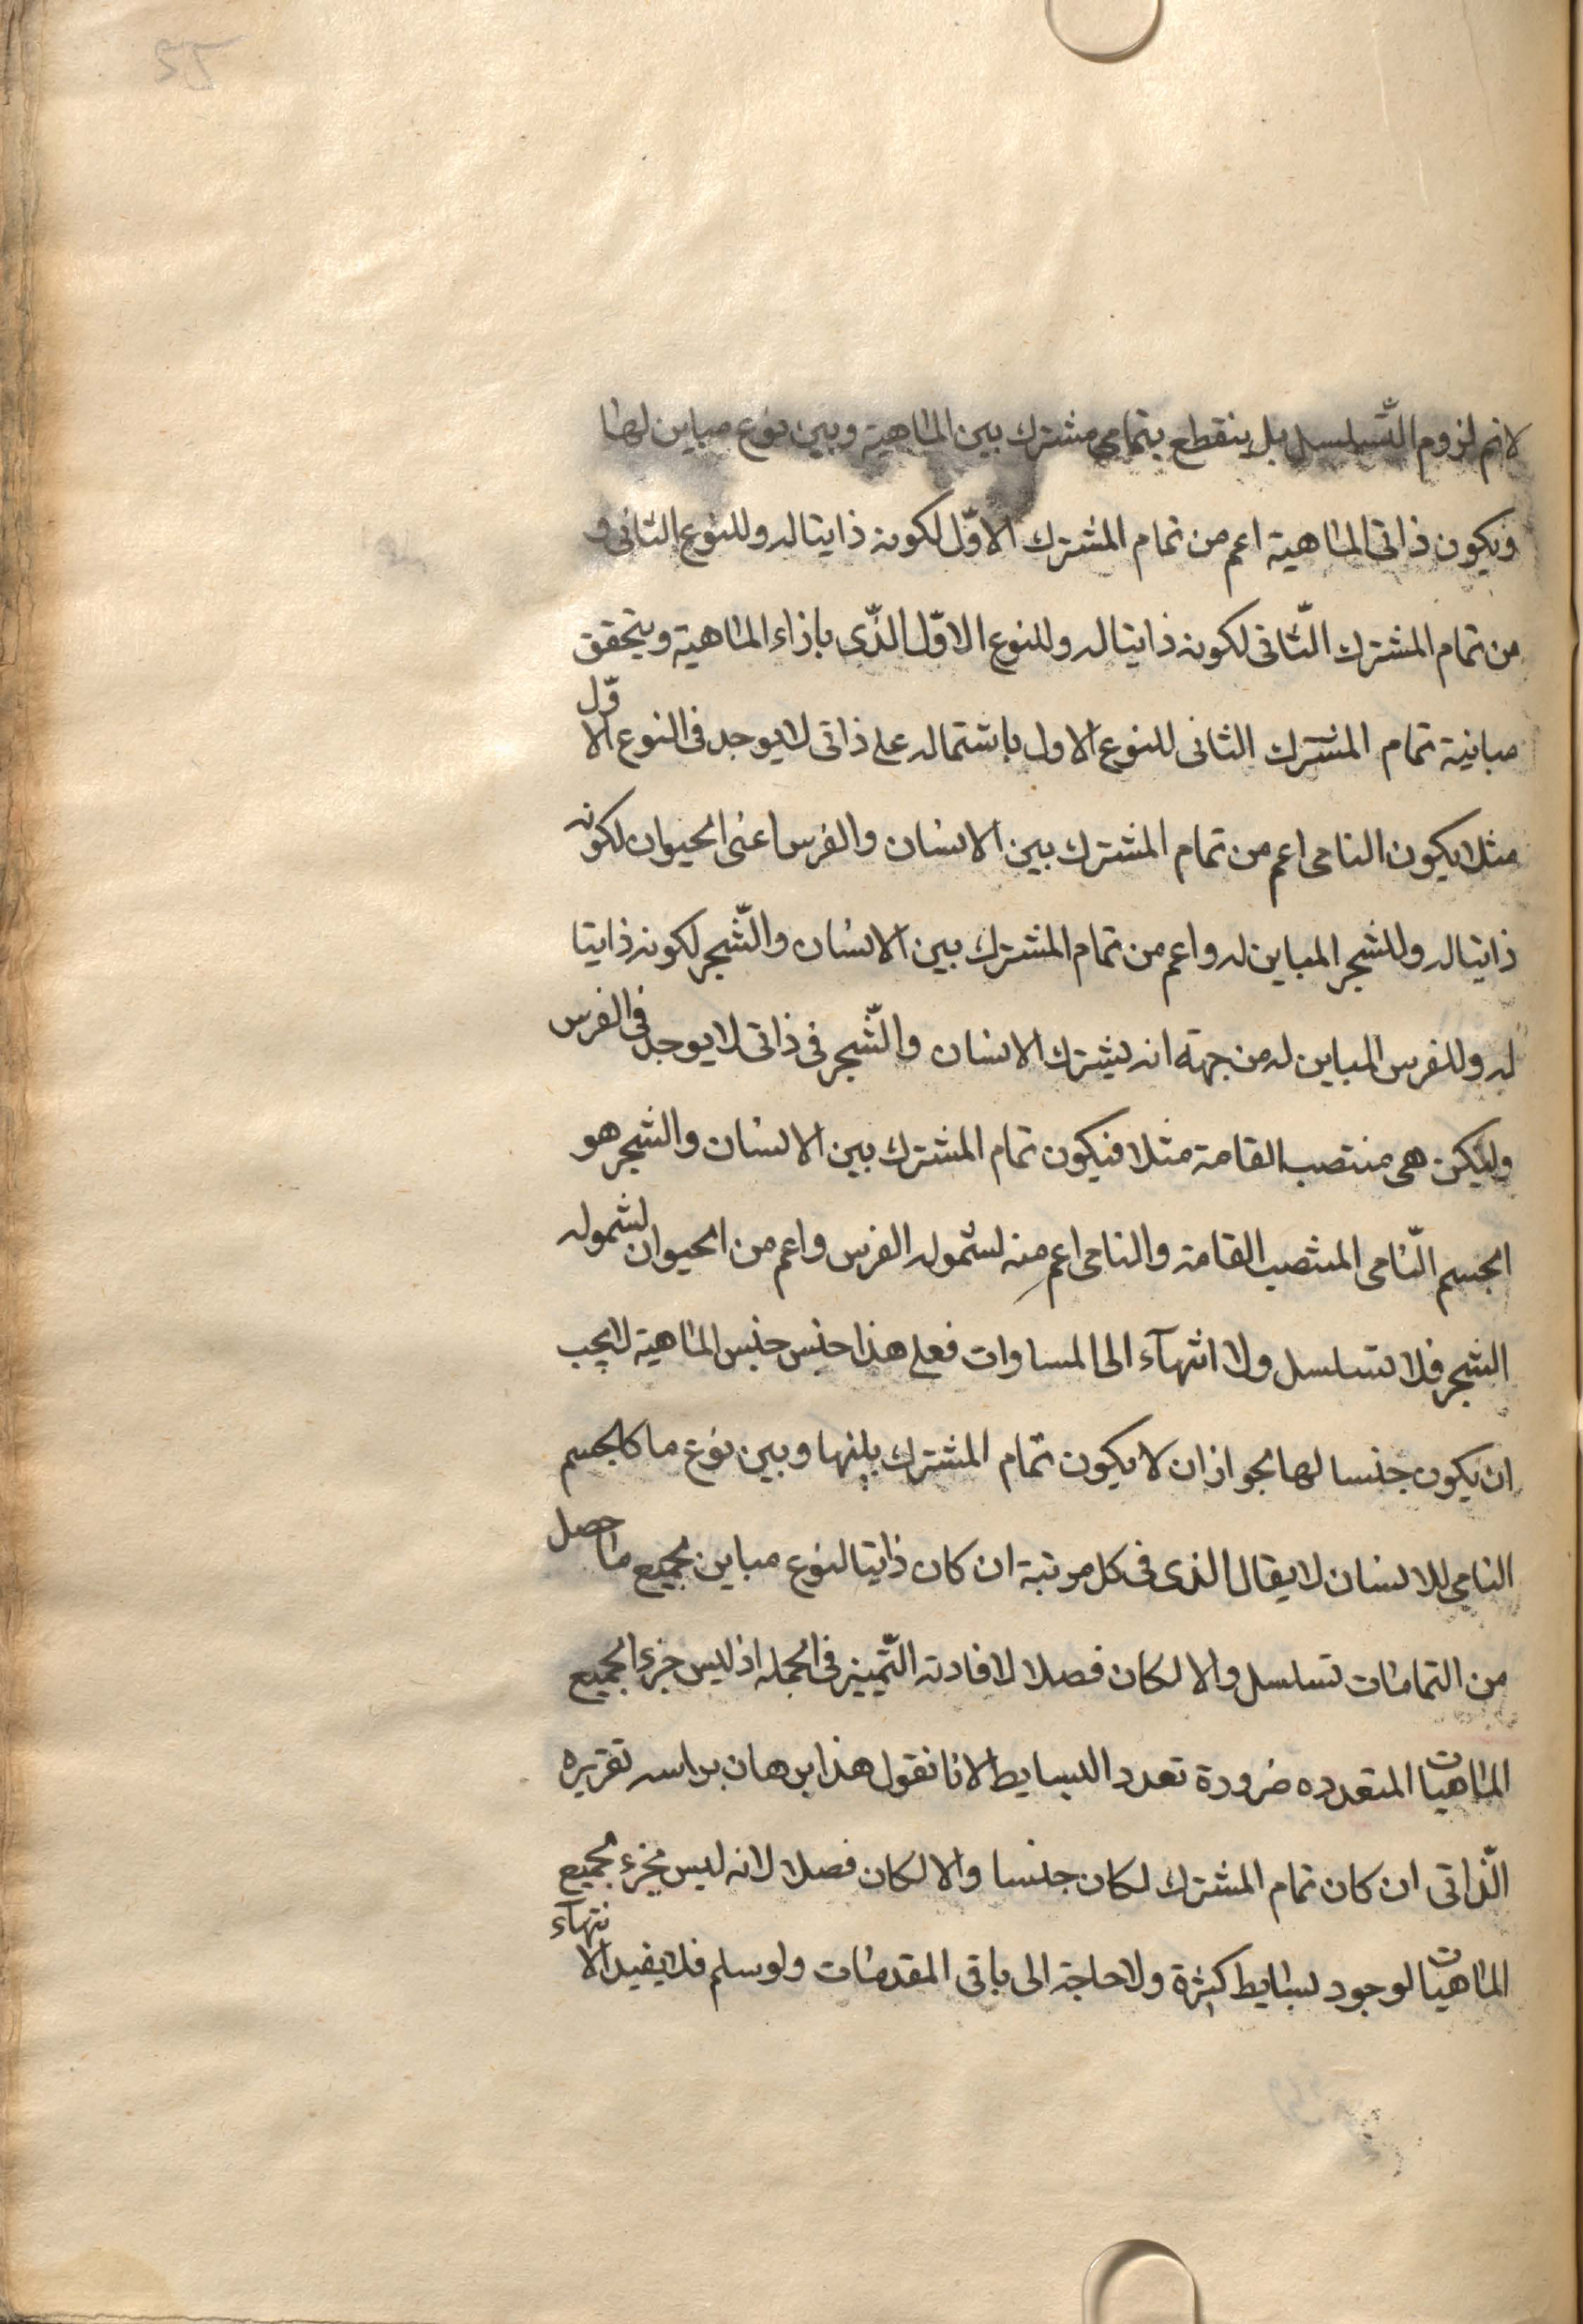 لانم لزوم التّسلسل بل ينقطع بتمامى مشترك بين الماهية وبين نوع مباين لها
ويكون ذاتى الماهية اعم من تمام المشترك الاوّل لكونه ذاتيا له وللنوع الثانى و
من تمام المشترك الثّانى لكونه ذاتيا له وللنوع الاوّل الذّى بازاء الماهية ويتحقق
مباينة تمام المشترك الثانى للنوع الاول باشتماله على ذاتى لايوجد فى النوع الاوّل
مثلا يكون النامى اعم من تمام المشترك بين الانسان والفرس اعنى الحيوان لكونه
ذاتيا له وللشجر المباين له واعم من تمام المشترك بين الانسان والشّجر لكونه ذاتيا
له وللفرس المباين له من جهته انه يشترك الانسان والشّجر فى ذاتى لايوجد فى الفرس
وليكن هى منتصب القامة مثلا فيكون تمام المشترك بين الانسان والشجر هو
الجسم النّامى المنتصب القامة والنامى اعم منه لشموله الفرس واعم من الحيوان لشموله
الشجر فلا تسلسل ولا انتهآء الى المساوات فعلى هذا جنس جنس الماهية لايجب
ان يكون جنسا لها لجواز ان لا يكون تمام المشترك بينها وبين نوع ما كالجسم
النامى للانسان لايقال الذى فى كل مرتبة ان كان ذاتيا لنوع مباين لجميع ما حصل
من التمامات تسلسل والا لكان فصلا لافادته التّميز فى الجمله اذ ليس جزء الجميع
الماهيات المتعدده ضرورة تعدد البسايط لانا نقول هذا برهان براسه تقريره
الّذاتى ان كان تمام المشترك لكان جنسا والا لكان فصلا لانه ليس بجزء لجميع
الماهيات لوجود بسايط كثيرة ولاحاجة الى باقى المقدمات ولو سلم فلايفيد الانتهآء